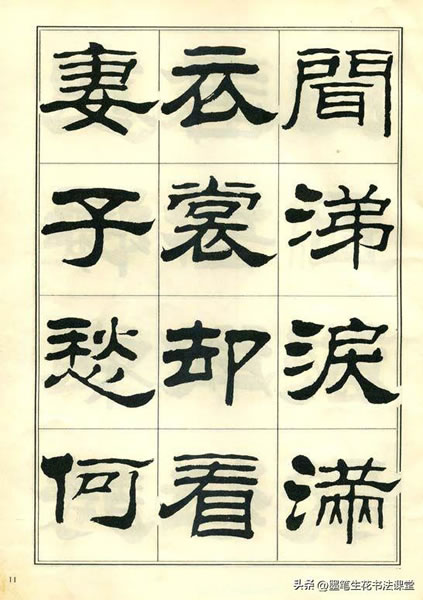 聞涕淚滿
衣裳却看
妻子愁何
11
头条 @墨笔生花书法课堂